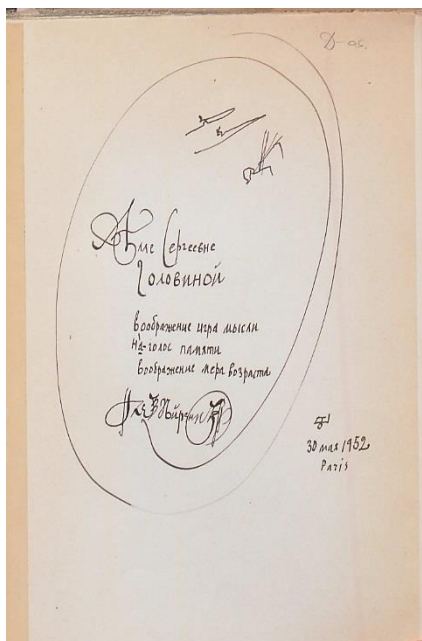 Алле Сергеевне
Головиной
воображение игра мысли
на-голос памяти
воображение мера возраста
30 мая 1952
Paris